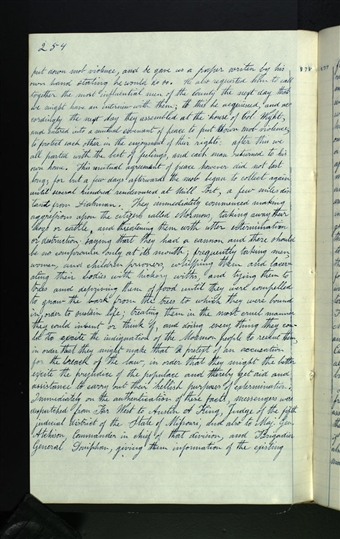 254
put down mob violence, and he gave us a paper written by his
own hand stating he would do so. He also requested him to call
together the most influential men of the county the next day that
we might have an interview with them; to this he acquiesced, and ac-
cordingly the next day they assembled at the house of Col. Wight,
and entered into a mutual covenant of peace to put down mob violence,
to protect each other in the enjoyment of their rights: after this we
all parted with the best of feelings, and each man returned to his
own home. This mutual agreement of peace however did not last
long; for but a few days afterwards the mob began to collect again
until several hundred rendezvoused at Mill Port, a few miles dis-
tant from Diahman. They immediately commenced making
aggressions upon the citizens called Mormons, taking away their
hogs & cattle, and threatening them with utter extermination
or destruction, saying that they had a cannon and there should
be no compromise only at its mouth; frequently taking men,
women, and children prisoners, whipping them and lacer-
ating their bodies with hickory withes, and tying them to
trees and depriving them of food until they were compelled
to gnaw the bark from the trees to which they were bound
in order to sustain life; treating them in the most cruel manner
they could invent or think of, and doing every thing they cou-
ld to excite the indignation of the Mormon people to rescue them,
in order that they might make that a pretext of an accusation
for the breach of the law, in order that they might the better
excite the prejudice of the populace and thereby get aid and
assistance to carry out their hellish purposes of extermination.
Immediately on the authentication of these facts, messengers were
dispatched from Far West to Austin A King, Judge of the fifth
judicial District of the State of Missouri, and also to Maj. Gen.
Atchison, Commander in chief of that division, and Brigadier
General Doniphan, giving them information of the existing